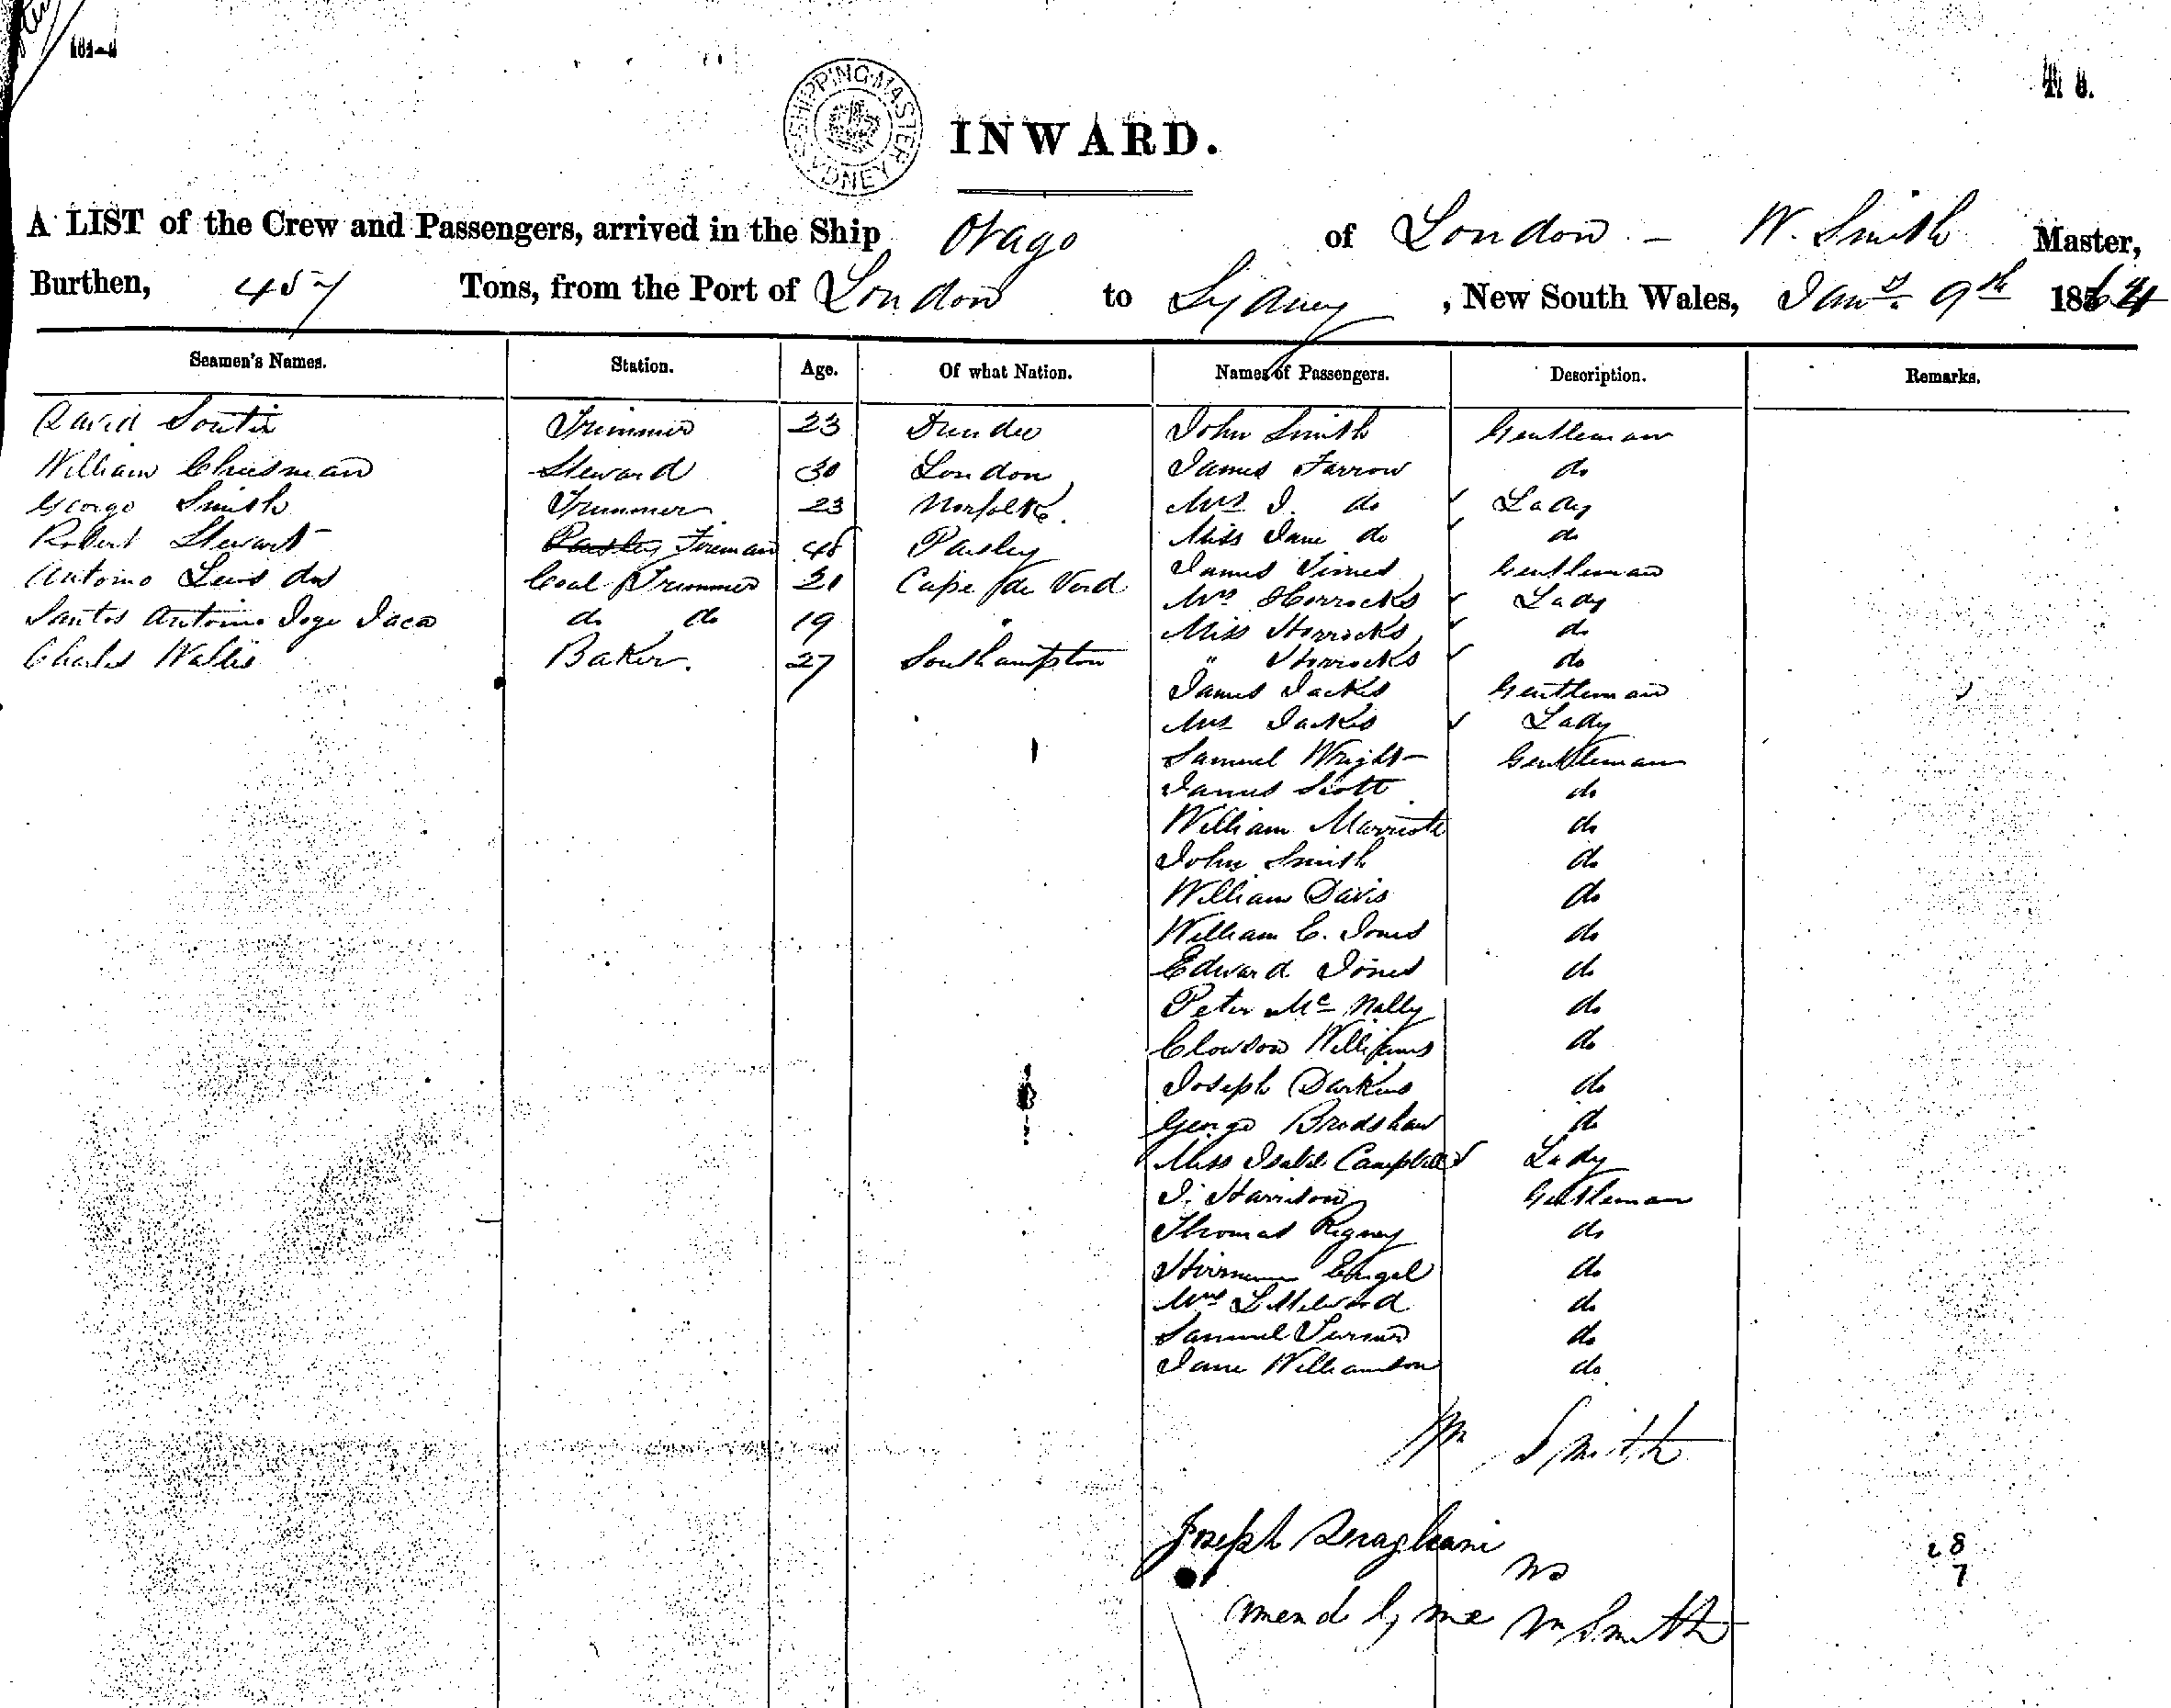 SHIPPING MASTER SYDNEY
INWARD.
A LIST of the Crew and Passengers, arrived in the Ship Otago of London - W. Smith Master,
Burthen, 457 Tons, from the Port of London to Sydney, New South Wales, Jany. 9th 1864
Seamen's Names. Station. Age. Of what Nation. Names of Passengers. Description. Remarks.
David Soutir Trimmer 23 Dundee
William Cheesman Steward 30 London
George Smith Trimmer 23 Norfolk.
Robert Stewart Paisley Fireman 48 Paisley
Antonio Lewis dos Coal Trimmer 21 Cape de Verd
Santos Antonio do do 19 "
Charles Wallis Baker. 27 Southampton
John Smith Gentleman
James Farrow do
Mrs J. do Lady
Miss Jane do do
James Gentleman
Mrs Horrocks Lady
Miss Horrocks do
" Horrocks do
James Jackes Gentleman
Mrs Jackes Lady
Samuel Wright Gentleman
James Scott do
William Marriott do
John Smith do
William Davis do
William E. Jones do
Edward Jones do
Peter Mc Nally do
Williams do
Joseph Darkins do
George Bradshaw do
Miss Isabel Campbell Lady
J. Harrison Gentleman
Thomas Rigney do
Engel do
do
Samuel Turner do
Jane Williamson do
Wm Smith
Joseph
no
amend by me Wm Smith
28
7